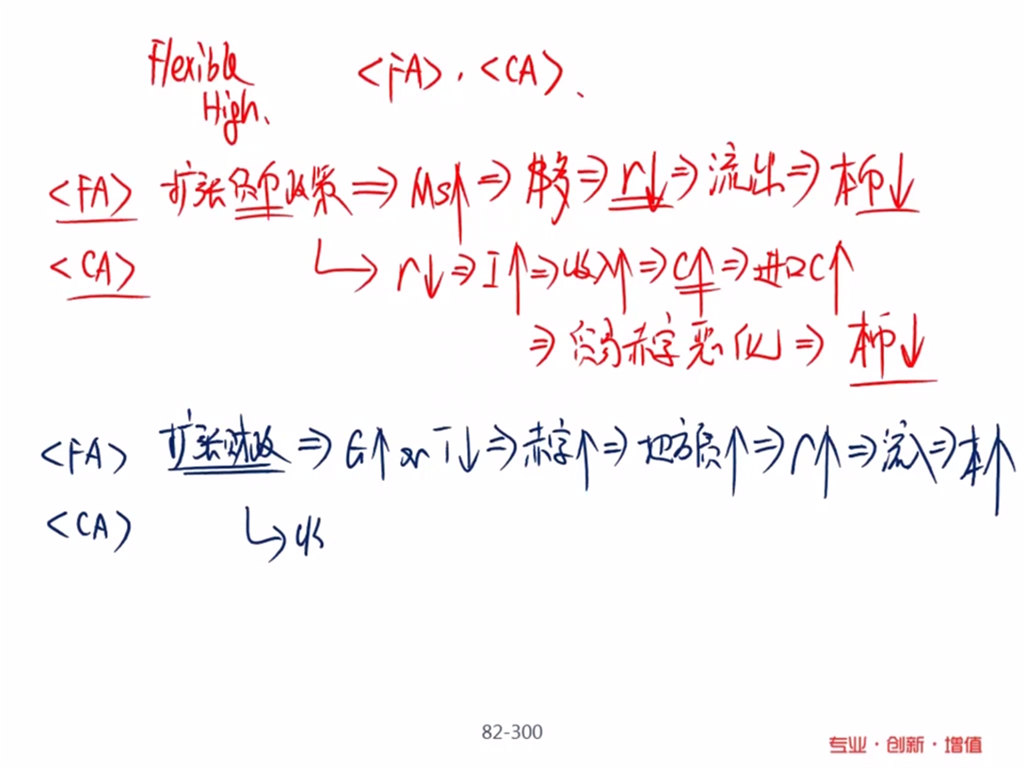 Flexible
High.
<FA>, <CA>.
<FA> 扩张货币政策 ⇒ Ms↑ ⇒ 本多 ⇒ r↓ ⇒ 流出 ⇒ 本币↓
<CA> ↳ r↓ ⇒ I↑ ⇒ 收入↑ ⇒ C↑ ⇒ 进口C↑
⇒ 贸易赤字恶化 ⇒ 本币↓
<FA> 扩张财政 ⇒ G↑ or T↓ ⇒ 赤字↑ ⇒ 地方债↑ ⇒ r↑ ⇒ 流入 ⇒ 本↑
<CA> ↳ 收
82-300
专业·创新·增值